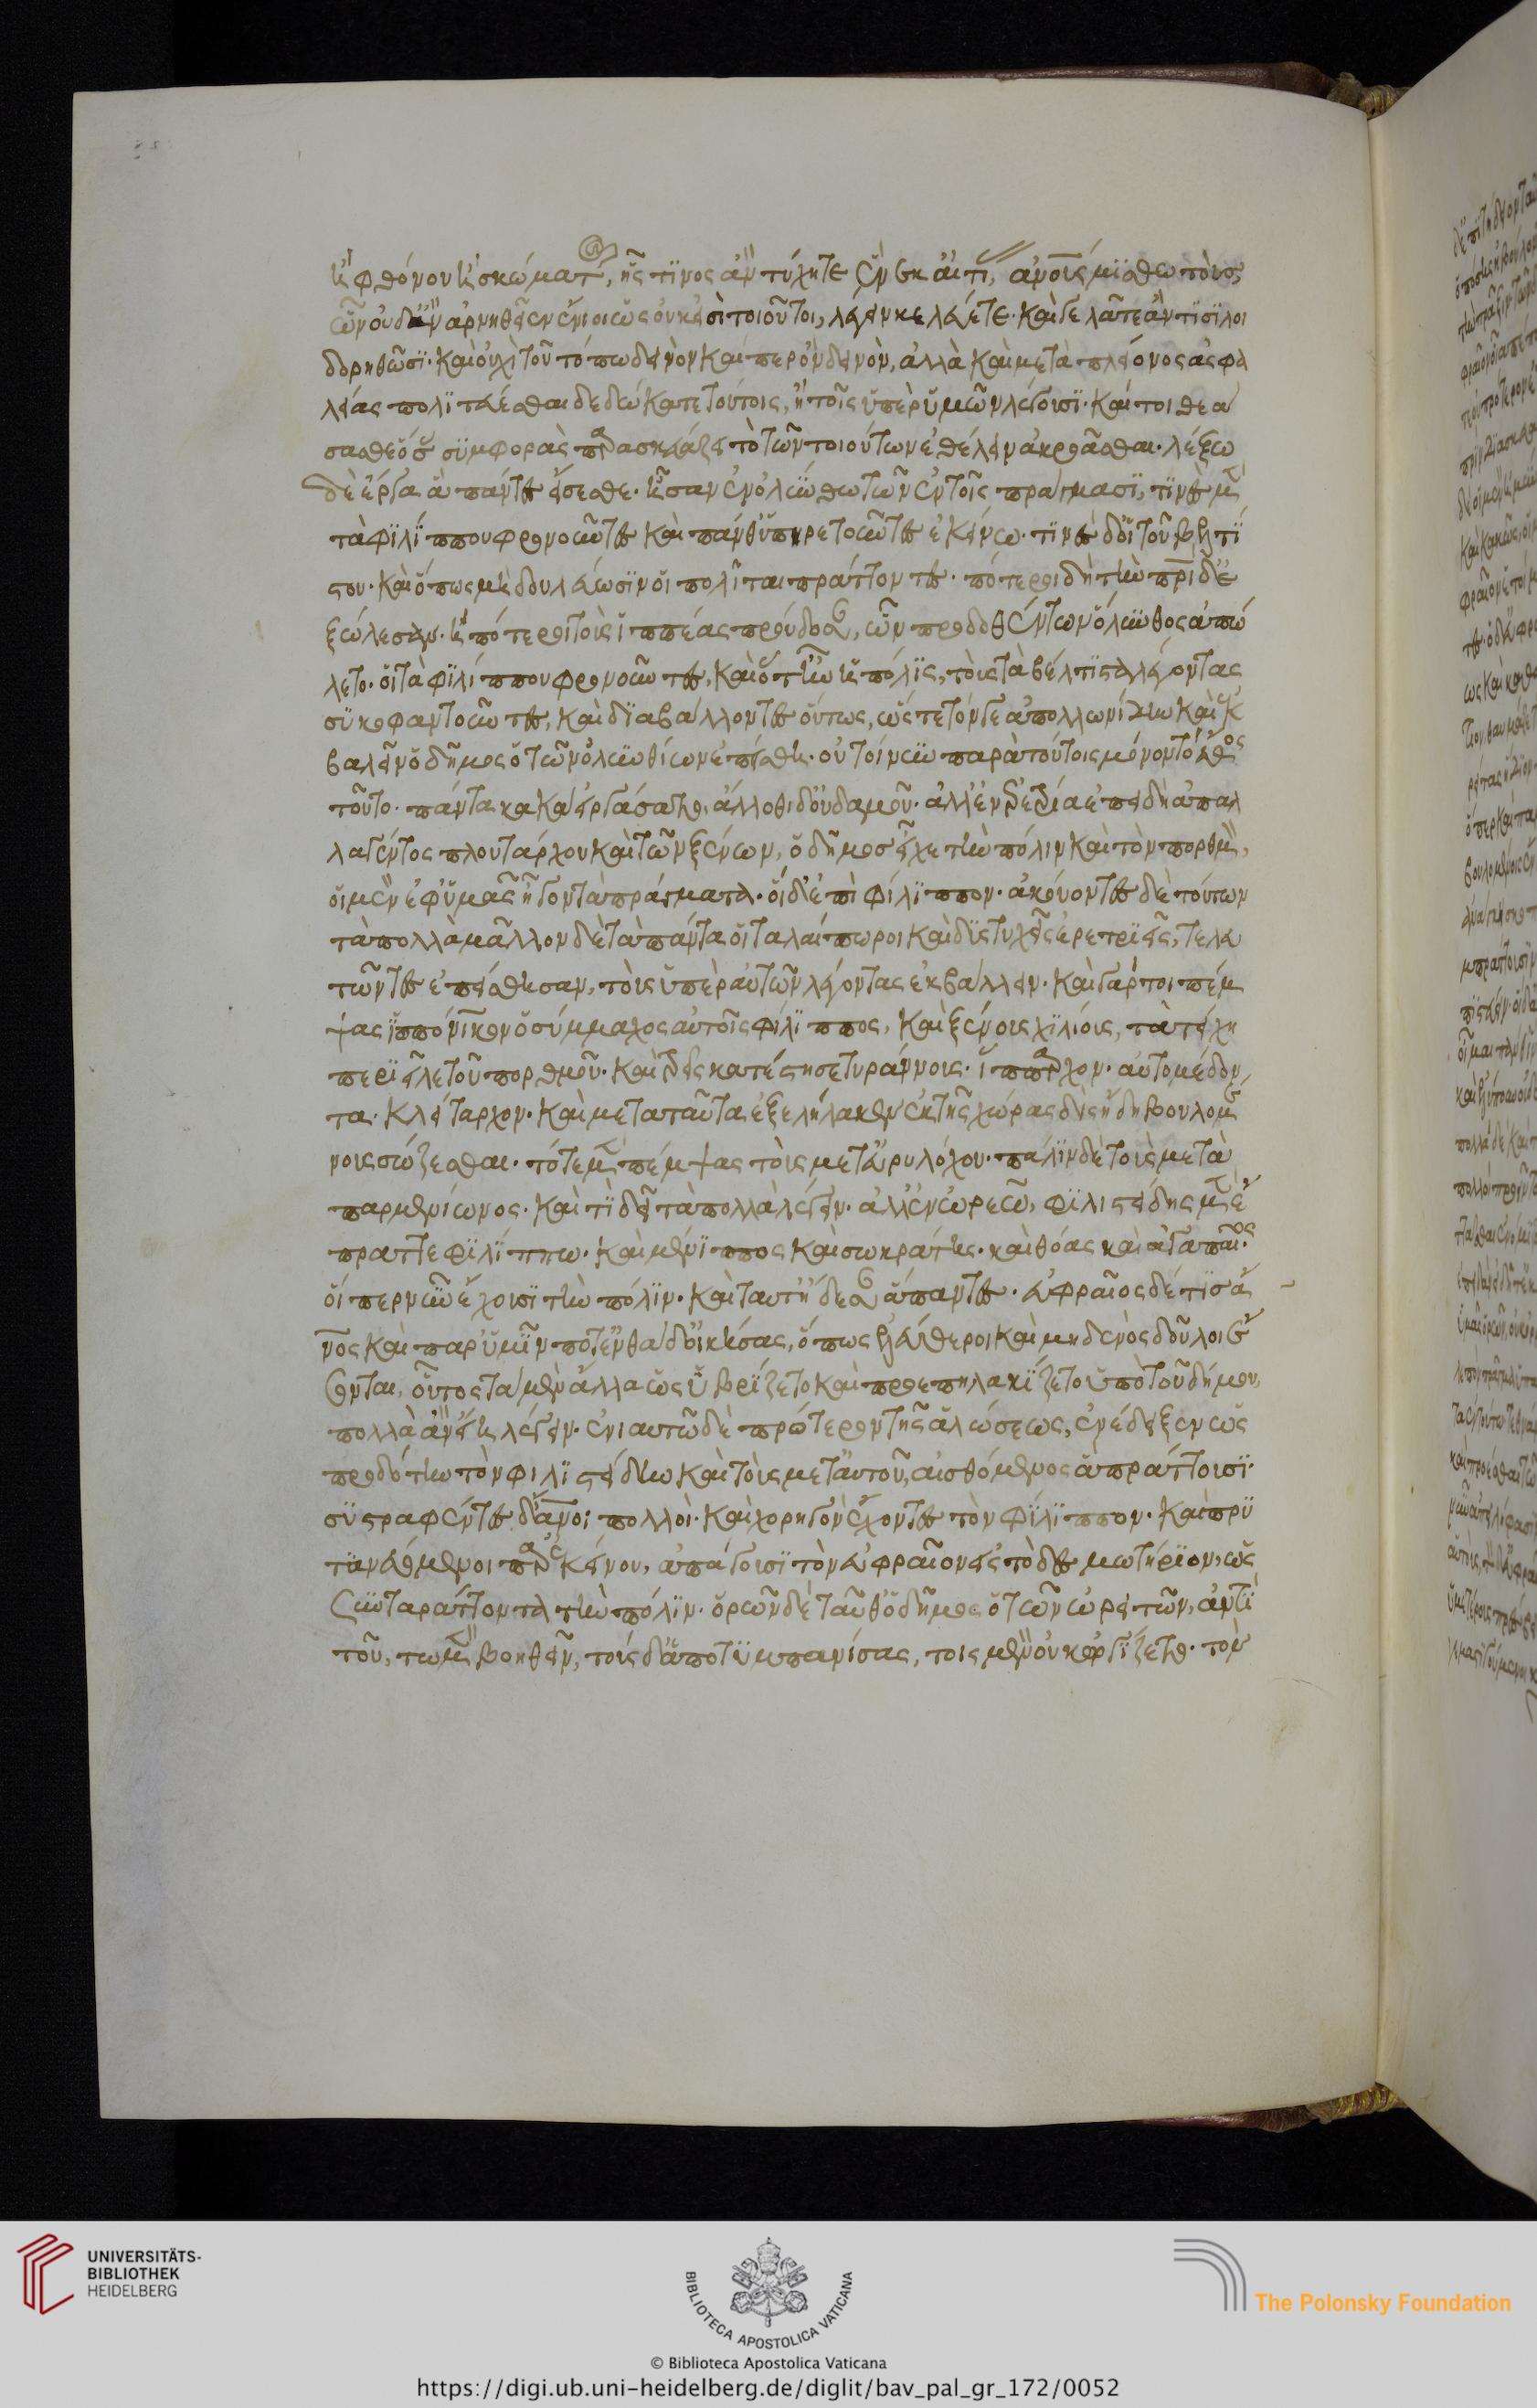 ἢ φθόνου ἢ σκώματος, ἧς τινος ἂν τύχητε ἕνεκ αἰτίας, ἀνους μισθωτοὺς,
ὧν οὐδ' ἂν ἀρνηθεῖεν ἔνιοι ὡς οὐκ εἰσὶ τοιοῦτοι, λέγειν κελεύετε· καὶ γελᾶτε ἄν τισι λοι
δορηθῶσι· καὶ οὐχὶ τοῦτό πω δεινὸν καίπερ ὂν δεινὸν, ἀλλὰ καὶ μετὰ πλείονος ἀσφα
λείας πολιτεύεσθαι δεδώκατε τούτοις, ἢ τοῖς ὑπὲρ ὑμῶν λέγουσι· καίτοι θεά
σασθε ὅσ συμφορὰς παρασκευάζει τὸ τῶν τοιούτων ἐθέλειν ἀκροᾶσθαι· λέξω
δὲ ἔργα ἃ πάντες εἴσεσθε· ἦσαν ἐν ὀλύνθω τῶν ἐν τοῖς πράγμασι, τινὲς μὲν
τὰ φιλίππου φρονοῦντες καὶ πάνθ' ὑπηρετοῦντες ἐκείνω· τινὲς δὲ οἱ τοῦ βελτί
στου· καὶ ὅπως μὴ δουλεύωσιν οἱ πολῖται πράττοντες· πότεροι δὴ τὴν πρίδα ἐ
ξώλεσαν· ἢ πότεροι τοὺς ἱππέας προύδοσαν, ὧν προδοθέντων ὄλυνθος ἀπώ
λετο· οἱ τὰ φιλίππου φρονοῦντες, καὶ ὅτ' ἦν ἡ πόλις, τοὺς τὰ βέλτιστα λέγοντας
συκοφαντοῦντες, καὶ διαβάλλοντες οὕτως, ὥστε τόν γε ἀπολλωνίδην καὶ ἐκ
βαλεῖν ὁ δῆμος ὁ τῶν ὀλυνθίων ἐπείσθη· οὐ τοίνυν παρὰ τούτοις μόνον τὸ ἔθος
τοῦτο· πάντα κακὰ εἰργάσατο, ἄλλοθι δ' οὐδαμοῦ· ἀλλ' ἐν ἐρετρία ἐπειδὴ ἀπαλ
λαγέντος πλουτάρχου καὶ τῶν ξένων, ὁ δῆμος εἶχε τὴν πόλιν καὶ τὸν πορθμὸν,
οἱ μὲν ἐφ' ὑμᾶς ἦγον τὰ πράγματα· οἱ δ' ἐπὶ φίλιππον· ἀκούοντες δὲ τούτων
τὰ πολλὰ μᾶλλον δὲ τὰ πάντα οἱ ταλαίπωροι καὶ δυστυχεῖς ἐρετριεῖς, τελευ
τῶντες ἐπείσθησαν, τοὺς ὑπὲρ αὐτῶν λέγοντας ἐκβάλλειν· καὶ γάρ τοι πέμ
ψας ἱππόνικον ὁ σύμμαχος αὐτοῖς φίλιππος, καὶ ξένους χιλίους, τὰ τείχη
περιεῖλε τοῦ πορθμοῦ· καὶ τρεῖς κατέστησε τυράννους· ἵππαρχον· αὐτομέδον
τα· κλείταρχον· καὶ μετὰ ταῦτα ἐξελήλακεν ἐκ τῆς χώρας δὶς ἤδη βουλομέ
νους σώζεσθαι· τότε μὲν πέμψας τοὺς μετ' εὐρυλόχου· πάλιν δὲ τοὺς μετὰ
παρμενίωνος· καὶ τί δεῖ τὰ πολλὰ λέγειν· ἀλλ' ἐν ὠρεῶ, φιλιστείδης μὲν ἔ
πραττε φιλίππω· καὶ μένιππος καὶ σωκράτης· καὶ θόας καὶ ἀγαπαῖος·
οἵπερ νῦν ἔχουσι τὴν πόλιν· καὶ ταῦτ' ἤδεσαν ἅπαντες· εὐφραῖος δέ τις ἄ
νος καὶ παρ' ὑμῖν ποτ' ἐνθάδ' οἰκήσας, ὅπως ἐλεύθεροι καὶ μηδενὸς δοῦλοι ἔ
σονται, οὗτος τὰ μὲν ἄλλα ὡς ὑβρίζετο καὶ προεπηλακίζετο ὑπὸ τοῦ δήμου,
πολλὰ ἂν εἴη λέγειν· ἐνιαυτῶ δὲ πρότερον τῆς ἁλώσεως, ἐνέδειξεν ὡς
προδότην τὸν φιλιστείδην καὶ τοὺς μετ' αὐτοῦ, αἰσθόμενος ἃ πράττουσι·
συστραφέντες δ' ἄνοι πολλοὶ· καὶ χορηγὸν ἔχοντες τὸν φίλιππον· καὶ πρυ
τανευόμενοι παρ' ἐκείνου, ἀπάγουσι τὸν εὐφραῖον εἰς τὸ δεσμωτήριον, ὡς
συνταράττοντα τὴν πόλιν· ὁρῶν δὲ ταῦθ' ὁ δῆμος ὁ τῶν ὠρειτῶν, ἀντὶ
τοῦ, τῶ μὲν βοηθεῖν, τοὺς δ' ἀποτυμπανίσας, τοῖς μὲν οὐκ ὠργίζετο· τὸν
UNIVERSITÄTS-
BIBLIOTHEK
HEIDELBERG
BIBLIOTECA APOSTOLICA VATICANA
The Polonsky Foundation
© Biblioteca Apostolica Vaticana
https://digi.ub.uni-heidelberg.de/diglit/bav_pal_gr_172/0052